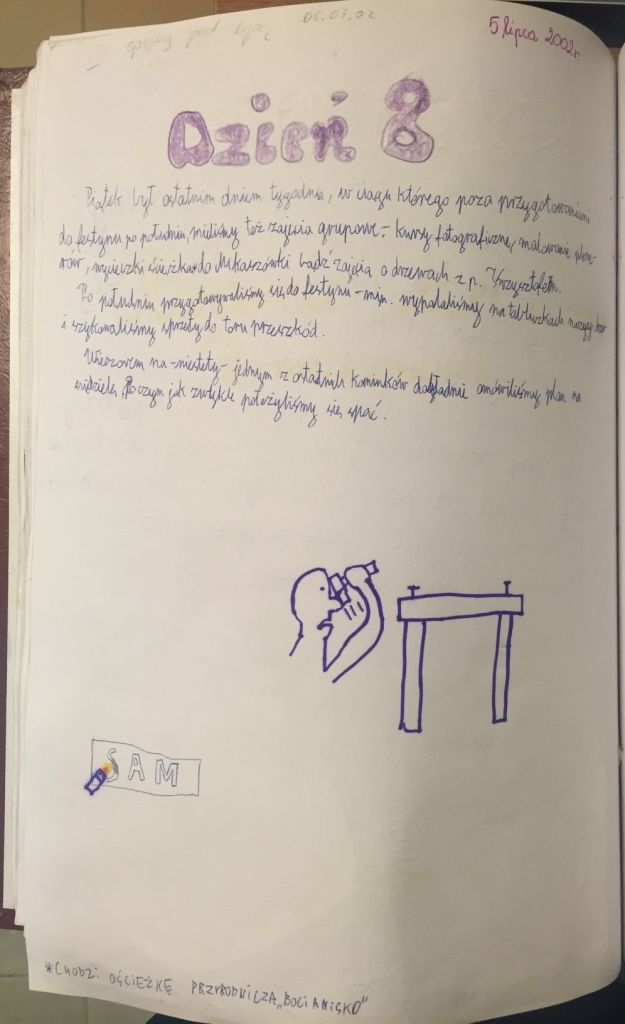 05.07.02
5 lipca 2002r.
Dzień 8
Piątek był ostatnim dniem tygodnia, w ciągu którego poza przygotowaniami
do festynu po południu, mieliśmy też zajęcia grupowe - kursy fotograficzne, malowanie plene-
rów, wycieczki ścieżką* do Mikaszówki bądź zajęcia o drzewach z p. Krzysztofem.
Po południu przygotowywaliśmy się do festynu - m.in. wypalaliśmy na tabliczkach nazwy
i szykowaliśmy sprzęty do toru przeszkód.
Wieczorem na -niestety- jednym z ostatnich kominków dokładnie omówiliśmy plan na
niedzielę, po czym jak zwykle położyliśmy się spać.
SAM
*CHODZI O ŚCIEŻKĘ PRZYRODNICZĄ „BOCIANISKO"